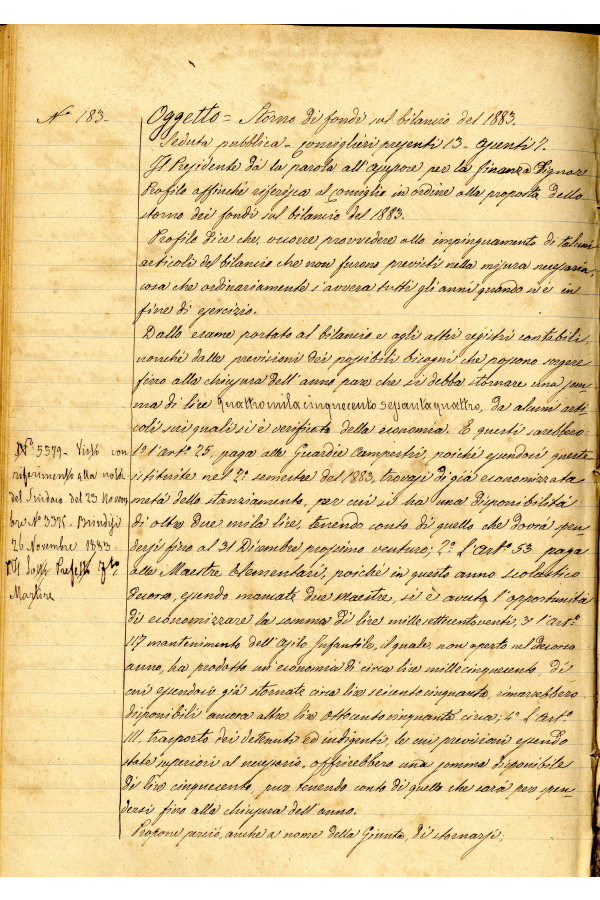 N° 183-
Oggetto = Storno di fondi sul bilancio del 1883.
Seduta pubblica - Consiglieri presenti 13 - Assenti 7.
Il Presidente dà la parola all'Assessore per la finanza Signore
Profilo affinchè riferisca al Consiglio in ordine alla proposta dello
storno dei fondi sul bilancio del 1883.
Profilo dice che, occorre provvedere allo impinguamento di taluni
articoli del bilancio che non furono previsti nella misura necessaria,
cosa che ordinariamente s'avvera tutti gli anni quando si è in
fine di esercizio.
Dallo esame portato al bilancio e agli altri registri contabili,
nonchè dalle previsioni dei possibili bisogni che possono sorgere
fino alla chiusura dell'anno pare che si debba stornare una som-
ma di lire quattromila cinquecento sessantaquattro, da alcuni arti-
coli sui quali si è verificata della economia. E questi sarebbero:
1° l'art° 25, paga alle Guardie Campestri, poichè essendosi queste
istituite nel 2° semestre del 1883, trovasi di già economizzata
metà dello stanziamento, per cui si ha una disponibilità
di oltre due mila lire, tenendo conto di quello che dovrà spen-
dersi fino al 31 Dicembre prossimo venturo; 2° L'Art° 53 paga
alle Maestre Elementari, poichè in questo anno scolastico
decorso, essendo mancate due maestre, si è avuta l'opportunità
di economizzare la somma di lire millesettecentoventi; 3° l'art°
117 mantenimento dell'Asilo Infantile, il quale, non aperto nel decorso
anno, ha prodotto un'economia di circa lire millecinquecento, di
cui essendosi già stornate circa lire seicentocinquanta, rimarrebbero
disponibili ancora altre lire ottocentocinquanta circa; 4° L'Art°
111, trasporto dei detenuti ed indigenti, le cui previsioni essendo
state superiori al necessario, offrirebbero una somma disponibile
di lire cinquecento, pur tenendo conto di quello che sarà per spen-
dersi fino alla chiusura dell'anno.
Propone perciò, anche a nome della Giunta, di stornarsi,
N° 5579 - Visto con
riferimento alla nota
del Sindaco del 23 Novem-
bre N° 3375 - Brindisi
26 Novembre 1883
Il Sotto Prefetto f.to
Martire